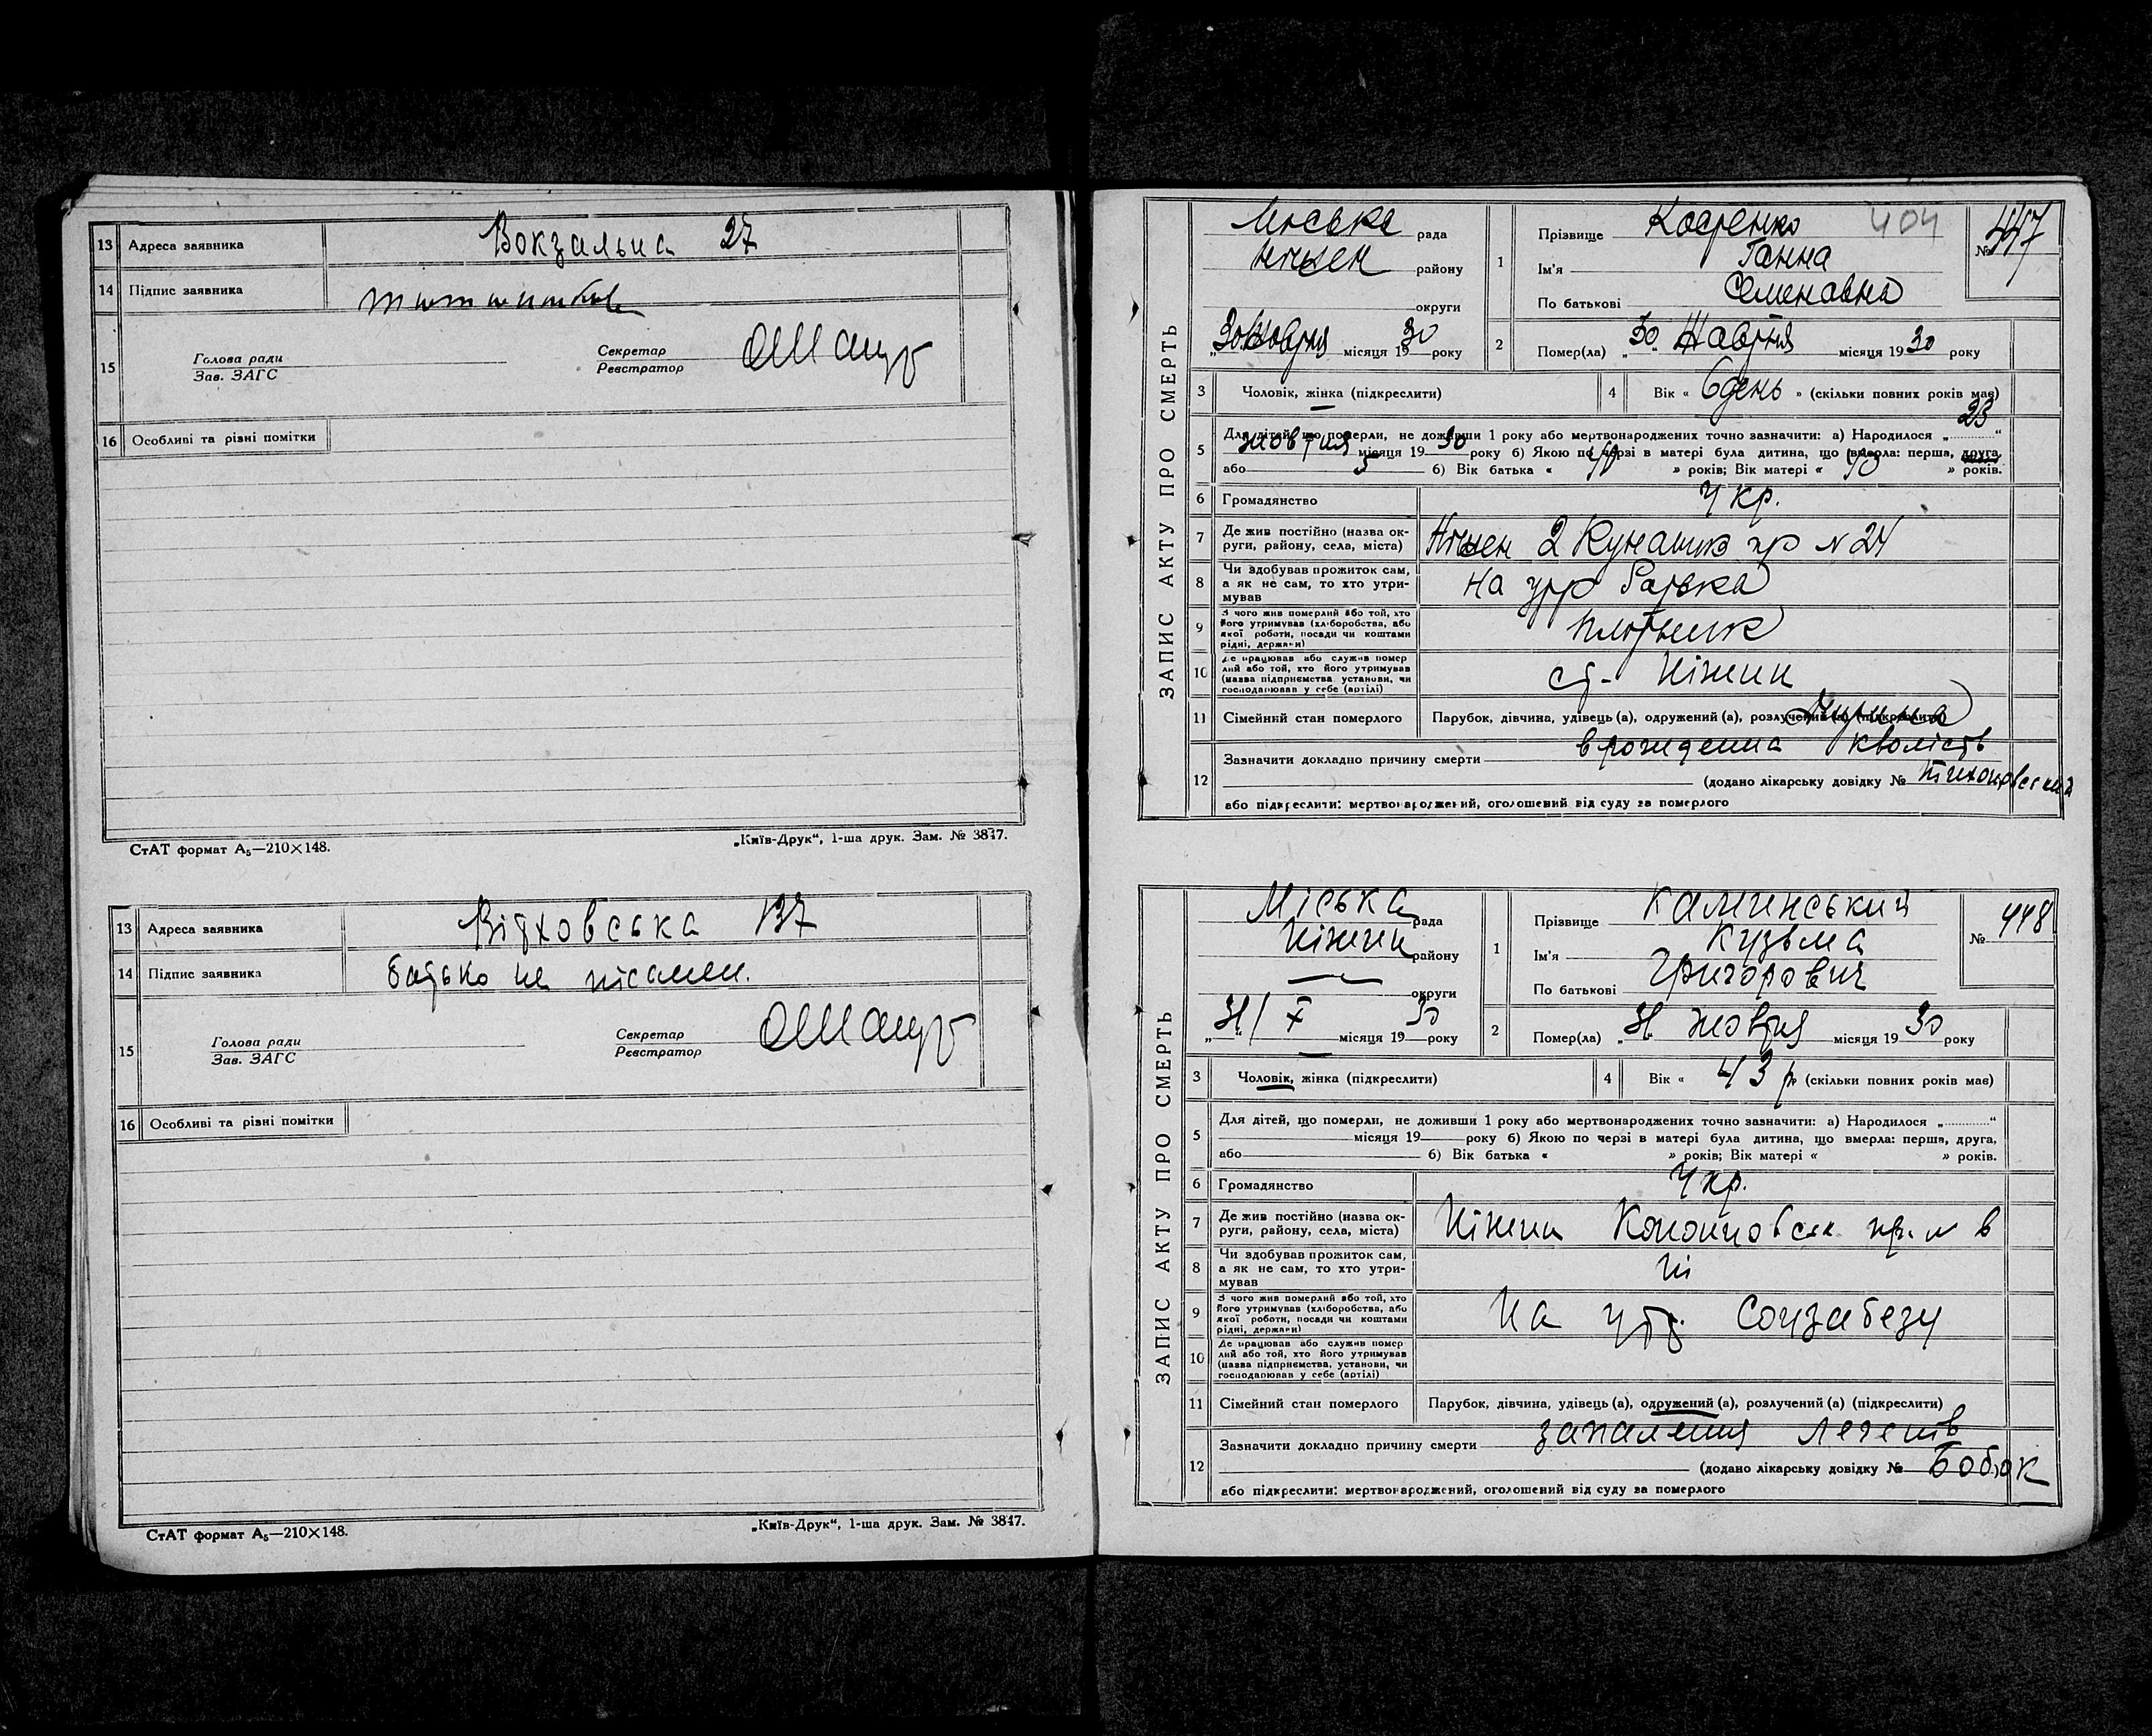 13 Адреса заявника Вокзальна 27
14 Підпис заявника
15 Голова ради
Зав. ЗАГС
Секретар
Реєстратор
16 Особливі та різні помітки
СтАТ формат А₅—210×148.
„Київ-Друк“, 1-ша друк. Зам. № 3847.
13 Адреса заявника 137
14 Підпис заявника батько не писмен.
15 Голова ради
Зав. ЗАГС
Секретар
Реєстратор
16 Особливі та різні помітки
СтАТ формат А₅—210×148.
„Київ-Друк“, 1-ша друк. Зам. № 3847.
ЗАПИС АКТУ ПРО СМЕРТЬ
Міська рада
Ніжен району
округи
„30 Жовтня місяця 1930 року
1 Прізвище 404
Ім'я Ганна
По батькові Семеновна
№ 447
2 Помер(ла) „30“ Жовтня місяця 1930 року
3 Чоловік, жінка (підкреслити)
4 Вік « 6 день » (скільки повних років має)
5 Для дітей, що померли, не доживши 1 року або мертвонароджених точно зазначити: а) Народилося „23“
жовтня місяця 1930 року б) Якою по черзі в матері була дитина, що вмерла: перша, друга,
або 5 б) Вік батька « 40 » років; Вік матері « 40 » років.
6 Громадянство Укр.
7 Де жив постійно (назва округи, району, села, міста) Ніжен 2 Кунашів пр № 24
8 Чи здобував прожиток сам, а як не сам, то хто утримував на утр батька
9 З чого жив померлий або той, хто його утримував (хліборобства, або якої роботи, посади чи коштами рідні, держави) плотник
10 Де працював або служив померлий або той, хто його утримував (назва підприємства, установи, чи господарював у себе (артілі) ст. Ніжин
11 Сімейний стан померлого Парубок, дівчина, удівець (а), одружений (а), розлучений (а) (підкреслити)
12 Зазначити докладно причину смерти врожденна кволість
(додано лікарську довідку № Тихоновский
або підкреслити: мертвонароджений, оголошений від суду за померлого
ЗАПИС АКТУ ПРО СМЕРТЬ
Міська рада
Ніжин району
округи
„31/X місяця 1930 року
1 Прізвище Каминський
Ім'я Кузьма
По батькові Григорович
№ 448
2 Помер(ла) „31“ жовтня місяця 1930 року
3 Чоловік, жінка (підкреслити)
4 Вік « 43 р » (скільки повних років має)
5 Для дітей, що померли, не доживши 1 року або мертвонароджених точно зазначити: а) Народилося „ “
місяця 19 року б) Якою по черзі в матері була дитина, що вмерла: перша, друга,
або б) Вік батька « » років; Вік матері « » років.
6 Громадянство Укр.
7 Де жив постійно (назва округи, району, села, міста) Ніжин
8 Чи здобував прожиток сам, а як не сам, то хто утримував ні
9 З чого жив померлий або той, хто його утримував (хліборобства, або якої роботи, посади чи коштами рідні, держави) на утр. Соцзабезу
10 Де працював або служив померлий або той, хто його утримував (назва підприємства, установи, чи господарював у себе (артілі)
11 Сімейний стан померлого Парубок, дівчина, удівець (а), одружений (а), розлучений (а) (підкреслити)
12 Зазначити докладно причину смерти запалення легенів
(додано лікарську довідку № Бобок
або підкреслити: мертвонароджений, оголошений від суду за померлого